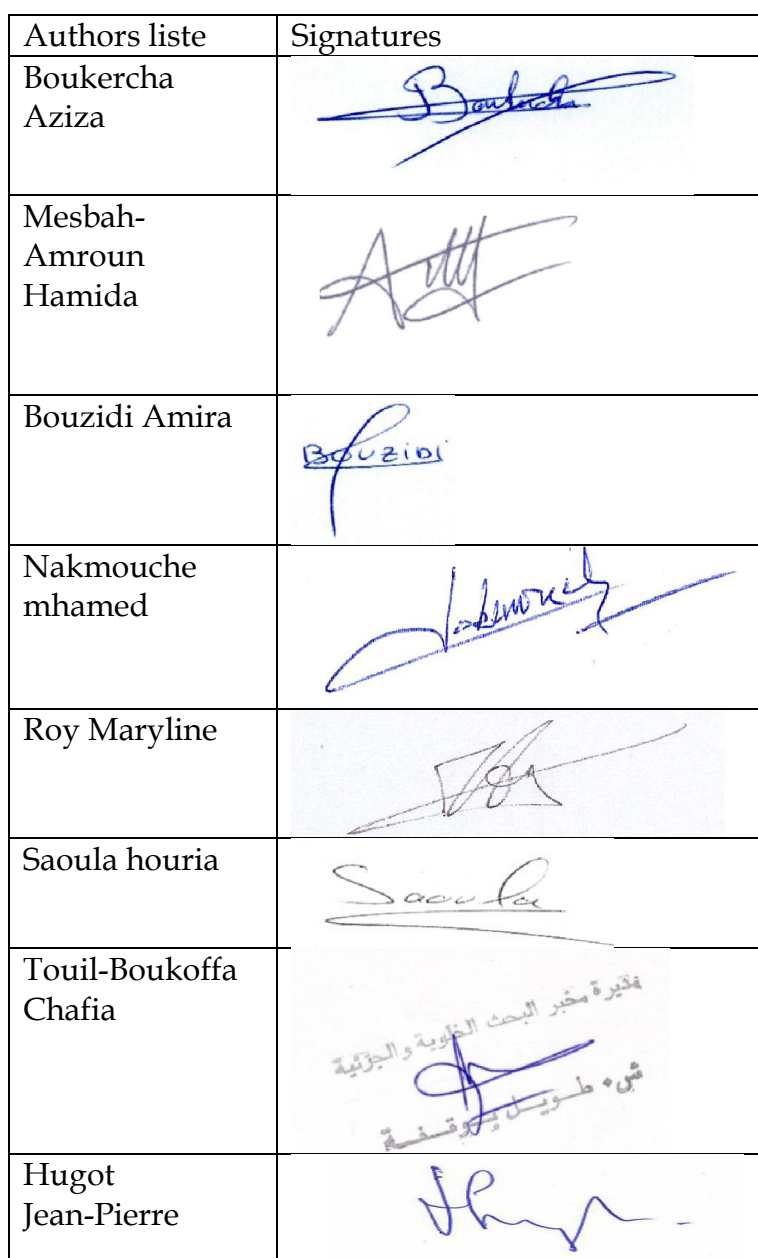 Authors liste Signatures
Boukercha
Aziza
Boukercha
Mesbah-
Amroun
Hamida
Bouzidi Amira
BOUZIDI
Nakmouche
mhamed
Roy Maryline
Saoula houria
Saoula
Touil-Boukoffa
Chafia
مديرة مخبر البحث الخلوية والجزئية
ش. طويل بوقفة
Hugot
Jean-Pierre